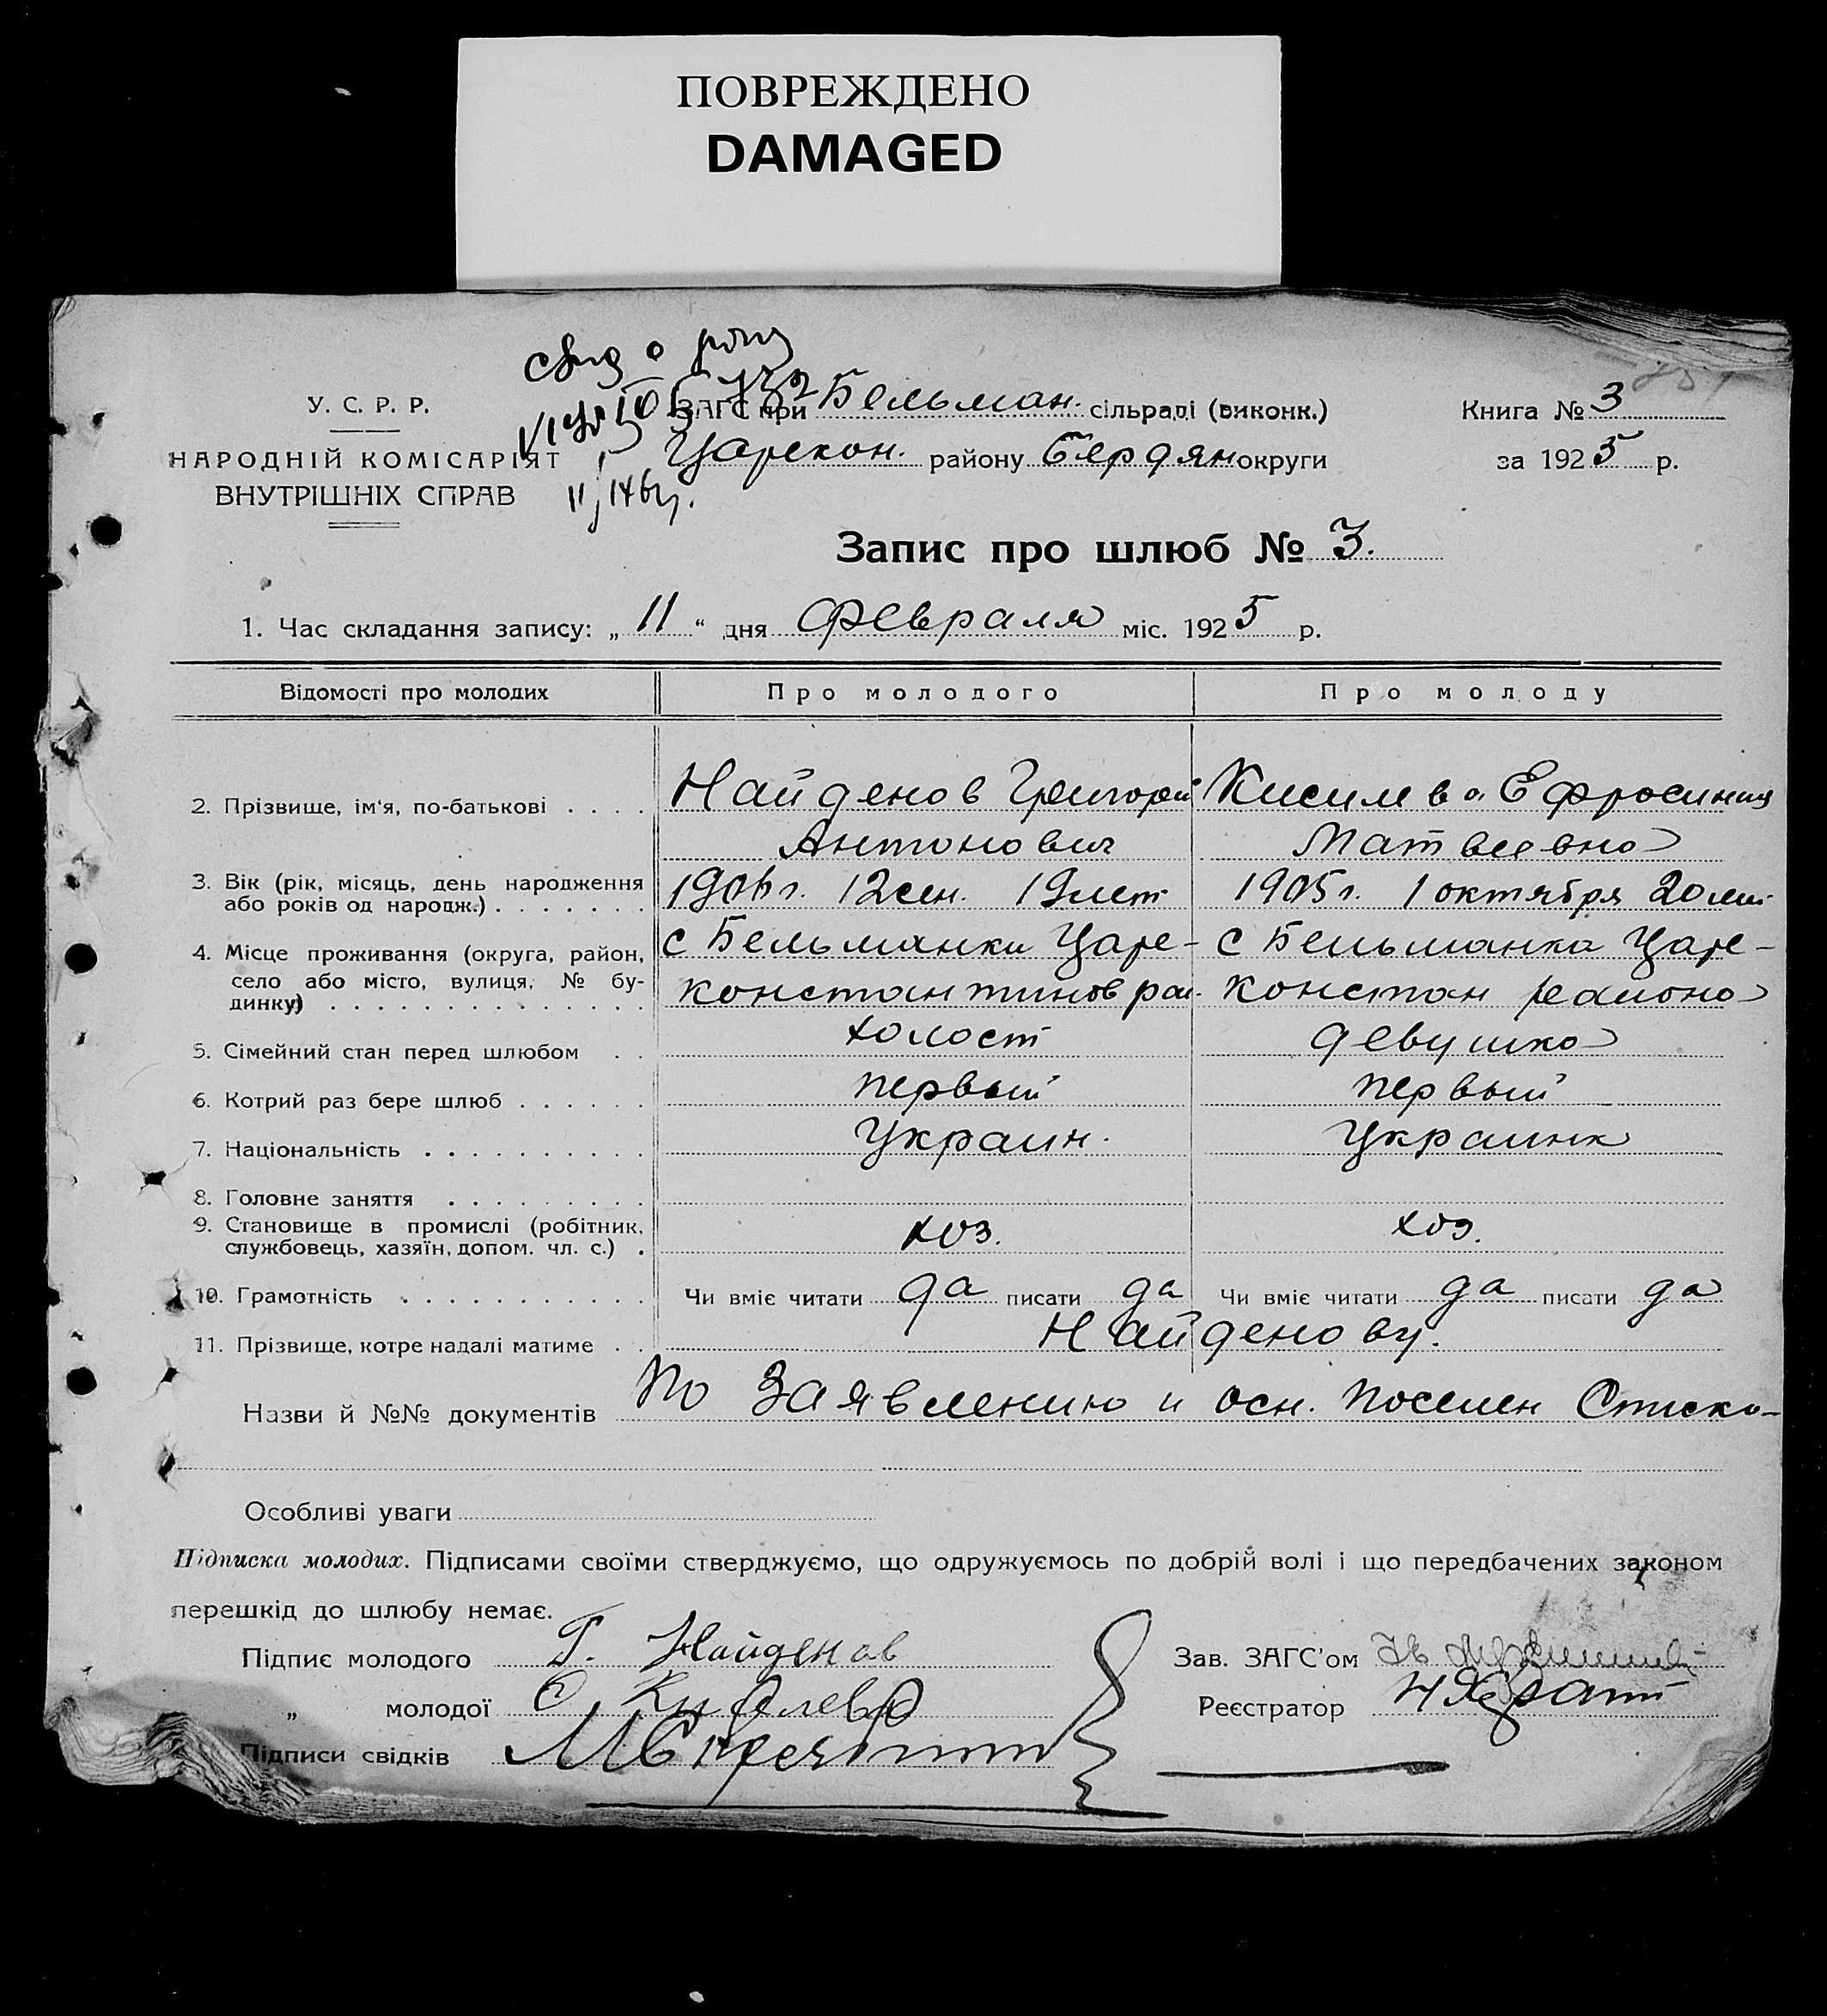 ПОВРЕЖДЕНО
DAMAGED
свид о
У. С. Р. Р.
НАРОДНІЙ КОМІСАРІЯТ
ВНУТРІШНІХ СПРАВ
ЗАГС при Бельман. сільраді (виконк.)
Царекон. району Бердян округи
Книга № 3
за 1925 р.
Запис про шлюб № 3.
1. Час складання запису: „ 11 “ дня Февраля міс. 1925 р.
Відомості про молодих Про молодого Про молоду
2. Прізвище, ім‘я, по-батькові . . . . Найденов Григорий Кисилева Ефросиния
Антонович Матвеевна
3. Вік (рік, місяць, день народження або років од народж.) . . . . . . . 1906 г. 12 сен. 19 лет 1905 г. 1 октября 20 лет
4. Місце проживання (округа, район, с Бельманки Царе- с Бельманка Царе-
село або місто, вулиця, № будинку) . . . . . . . . . . . . . . константинов рай. Констан района
5. Сімейний стан перед шлюбом . . холост девушка
6. Котрий раз бере шлюб . . . . . . первый первый
7. Національність . . . . . . . . . . Украин. Украинк
8. Головне заняття . . . . . . . . .
9. Становище в промислі (робітник, службовець, хазяїн, допом. чл. с.) . хоз. хоз.
10. Грамотність . . . . . . . . . . . Чи вміє читати да писати да Чи вміє читати да писати да
11. Прізвище, котре надалі матиме . . Найденову.
Назви й №№ документів По Заявлению и осн. Поселен Списка
Особливі уваги
Підписка молодих. Підписами своїми стверджуємо, що одружуємось по добрій волі і що передбачених законом
перешкід до шлюбу немає.
Підпис молодого Г. Найденов
„ молодої Е Киселева
Підписи свідків
Зав. ЗАГС'ом
Реєстратор